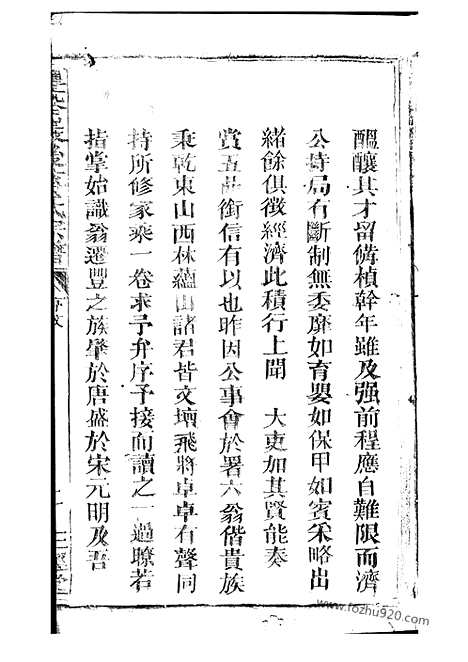 醞釀其才留備楨幹年雖及强前程應自難限而濟
公持局有斷制無委靡如育嬰如保甲如賓采略出
緒餘俱徵經濟此積行上聞　大吏加其賢能奏
賞五品銜信有以也昨因公事會於署六翁偕貴族
秉乾東山西林蘊山諸君皆文壇飛將卓卓有聲同
持所修家乘一卷求予弁序予接而讀之一過瞭若
指掌始識翁遷豐之族肇於唐盛於宋元明及吾
www.fozhu920.com